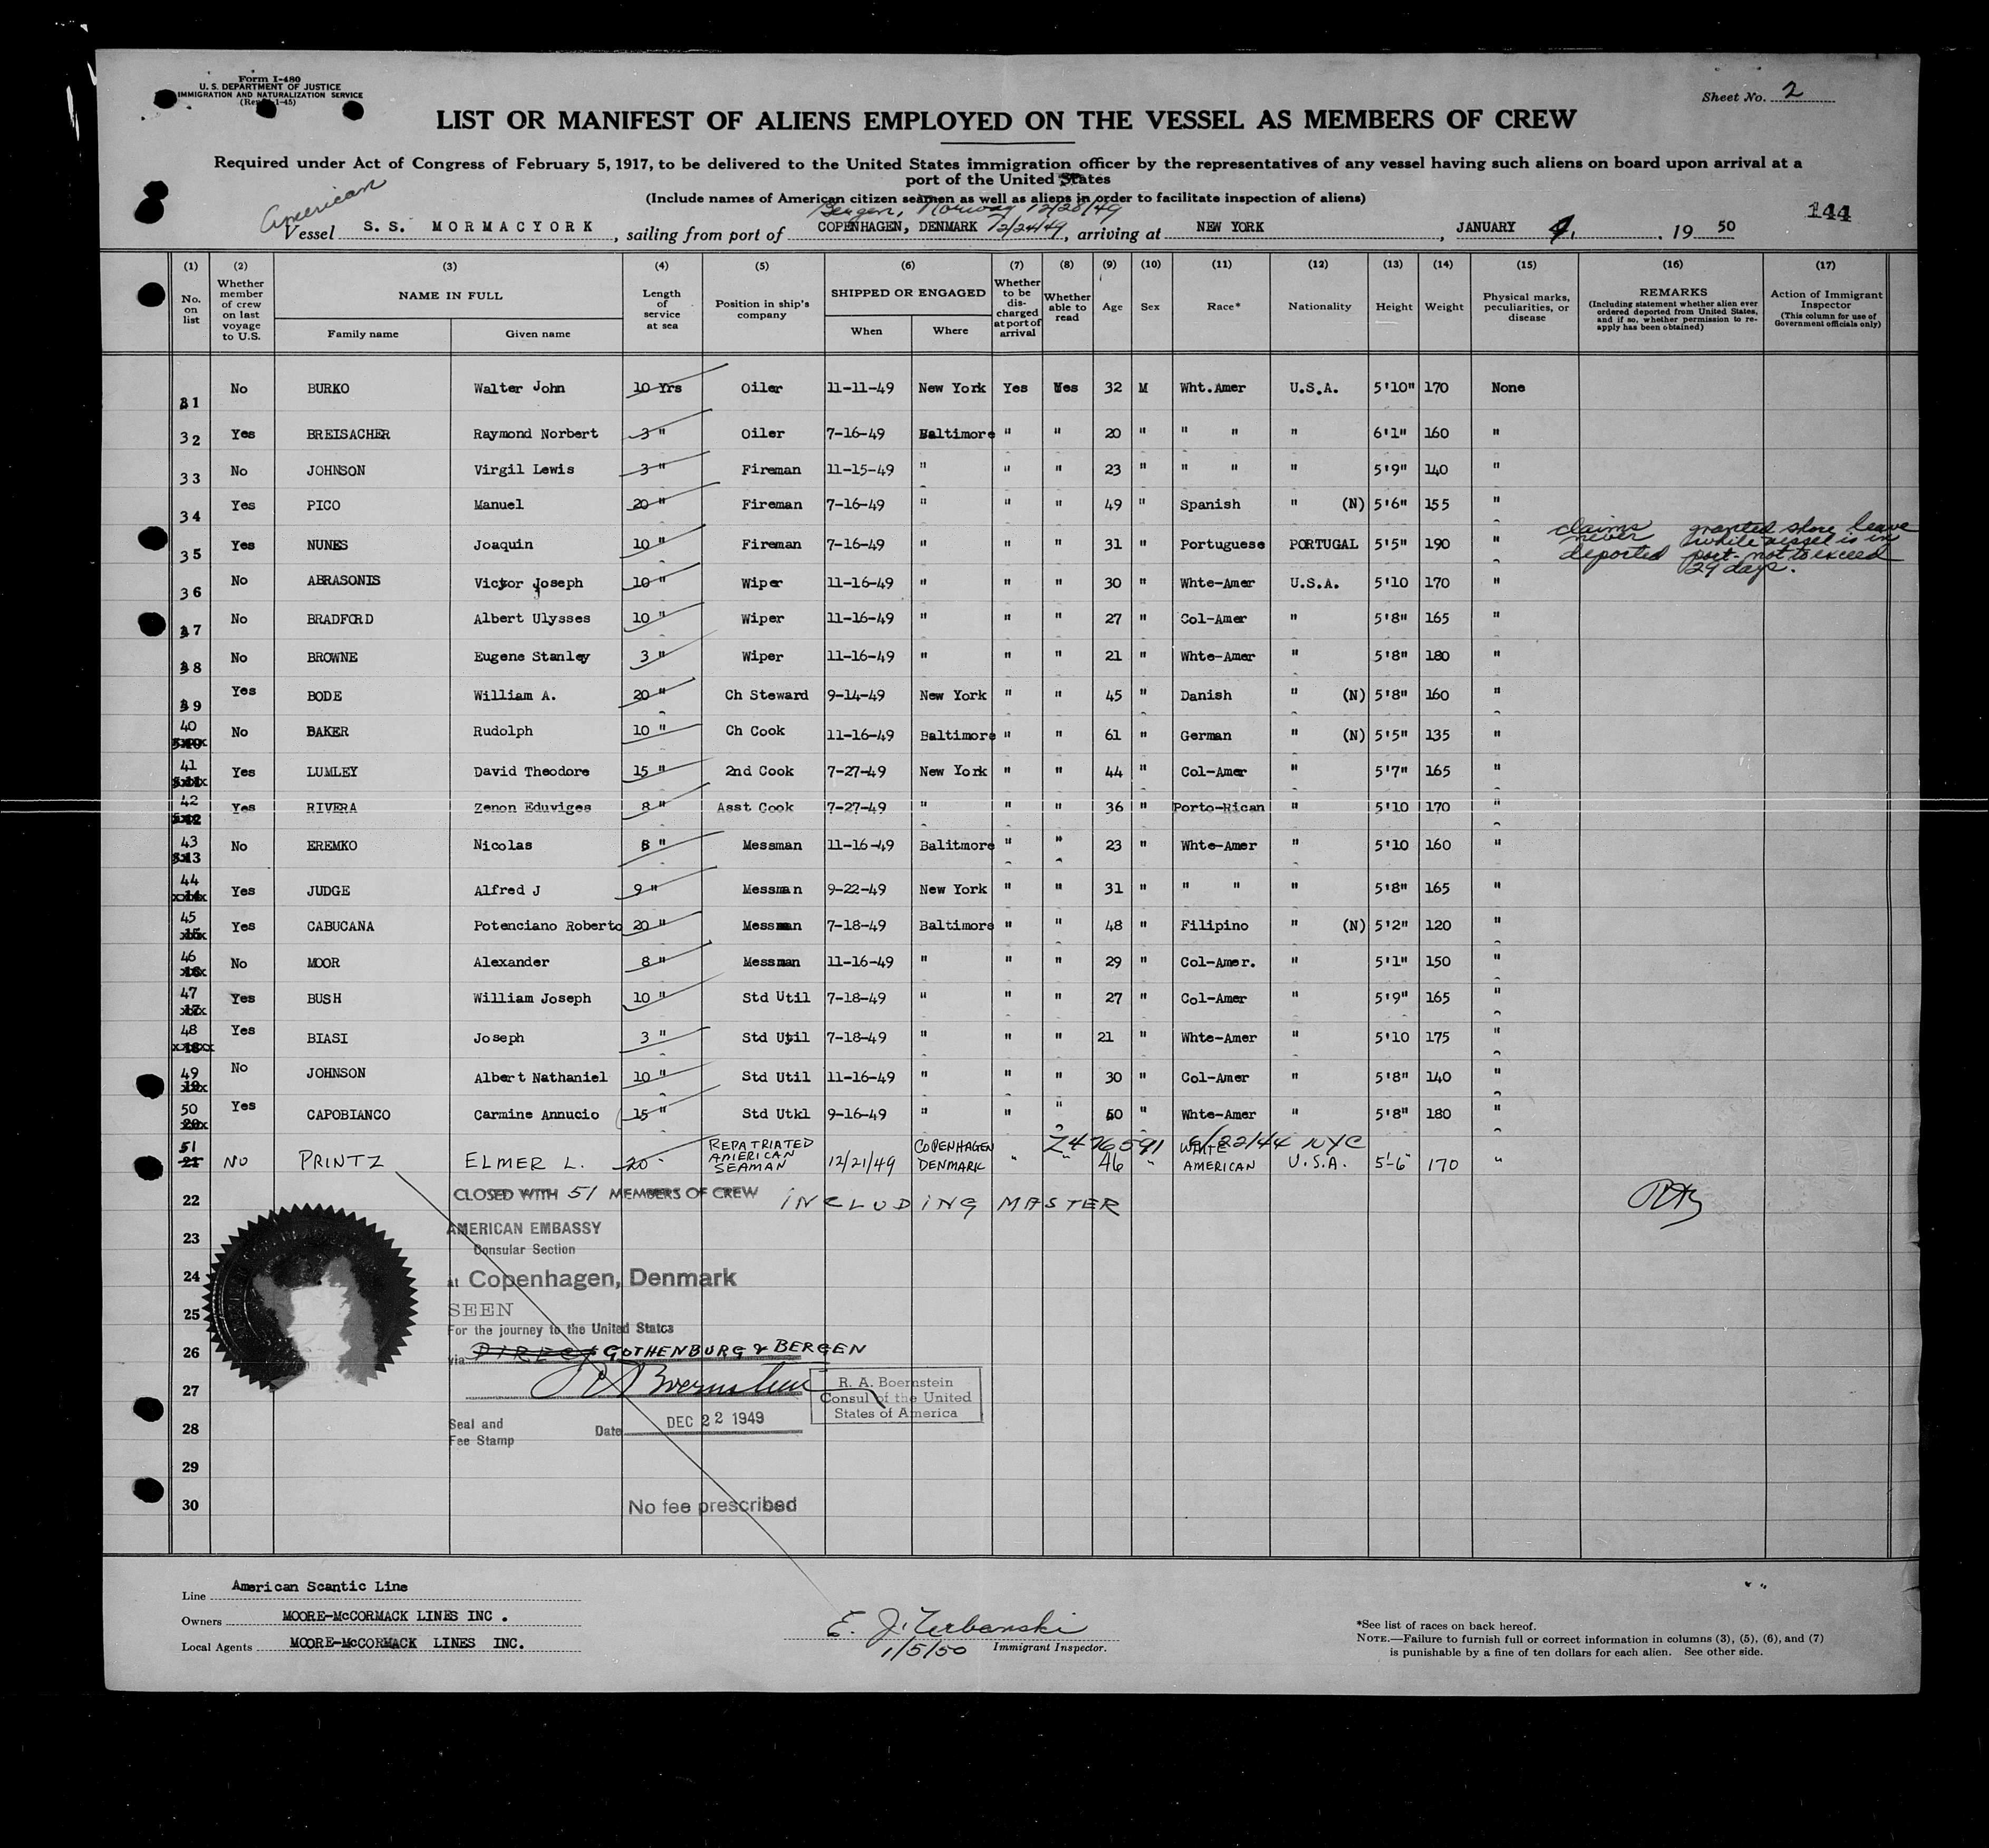 Form I-480
U. S. DEPARTMENT OF JUSTICE
IMMIGRATION AND NATURALIZATION SERVICE
Sheet No. 2
LIST OR MANIFEST OF ALIENS EMPLOYED ON THE VESSEL AS MEMBERS OF CREW
Required under Act of Congress of February 5, 1917, to be delivered to the United States immigration officer by the representatives of any vessel having such aliens on board upon arrival at a
port of the United States
(Include names of American citizen seamen as well as aliens in order to facilitate inspection of aliens)
American
Bergen, Norway 12/28/49
144
Vessel S. S. MORMACYORK, sailing from port of COPENHAGEN, DENMARK 12/24/49, arriving at NEW YORK, JANUARY 4, 19 50
(1) (2) (3) (4) (5) (6) (7) (8) (9) (10) (11) (12) (13) (14) (15) (16) (17)
No. on list
Whether member of crew on last voyage to U.S.
NAME IN FULL
Family name
Given name
Length of service at sea
Position in ship's company
SHIPPED OR ENGAGED
When
Where
Whether to be discharged at port of arrival
Whether able to read
Age
Sex
Race*
Nationality
Height
Weight
Physical marks, peculiarities, or disease
REMARKS
(Including statement whether alien ever ordered deported from United States, and if so, whether permission to reapply has been obtained)
Action of Immigrant Inspector
(This column for use of Government officials only)
31 No BURKO Walter John 10 Yrs Oiler 11-11-49 New York Yes Yes 32 M Wht.Amer U.S.A. 5'10" 170 None
32 Yes BREISACHER Raymond Norbert 3 " Oiler 7-16-49 Baltimore " " 20 " " " " 6'1" 160 "
33 No JOHNSON Virgil Lewis 3 " Fireman 11-15-49 " " " 23 " " " " 5'9" 140 "
34 Yes PICO Manuel 20 " Fireman 7-16-49 " " " 49 " Spanish " (N) 5'6" 155 "
35 Yes NUNES Joaquin 10 " Fireman 7-16-49 " " " 31 " Portuguese PORTUGAL 5'5" 190 " claims never deported granted shore leave while vessel is in port - not to exceed 29 days.
36 No ABRASONIS Victor Joseph 10 " Wiper 11-16-49 " " " 30 " Whte-Amer U.S.A. 5'10 170 "
37 No BRADFORD Albert Ulysses 10 " Wiper 11-16-49 " " " 27 " Col-Amer " 5'8" 165 "
38 No BROWNE Eugene Stanley 3 " Wiper 11-16-49 " " " 21 " Whte-Amer " 5'8" 180 "
39 Yes BODE William A. 20 " Ch Steward 9-14-49 New York " " 45 " Danish " (N) 5'8" 160 "
40 No BAKER Rudolph 10 " Ch Cook 11-16-49 Baltimore " " 61 " German " (N) 5'5" 135 "
41 Yes LUMLEY David Theodore 15 " 2nd Cook 7-27-49 New York " " 44 " Col-Amer " 5'7" 165 "
42 Yes RIVERA Zenon Eduviges 8 " Asst Cook 7-27-49 " " " 36 " Porto-Rican " 5'10 170 "
43 No EREMKO Nicolas 8 " Messman 11-16-49 Balitmore " " 23 " Whte-Amer " 5'10 160 "
44 Yes JUDGE Alfred J 9 " Messman 9-22-49 New York " " 31 " " " " 5'8" 165 "
45 Yes CABUCANA Potenciano Roberto 20 " Messman 7-18-49 Baltimore " " 48 " Filipino " (N) 5'2" 120 "
46 No MOOR Alexander 8 " Messman 11-16-49 " " " 29 " Col-Amer. " 5'1" 150 "
47 Yes BUSH William Joseph 10 " Std Util 7-18-49 " " " 27 " Col-Amer " 5'9" 165 "
48 Yes BIASI Joseph 3 " Std Util 7-18-49 " " " 21 " Whte-Amer " 5'10 175 "
49 No JOHNSON Albert Nathaniel 10 " Std Util 11-16-49 " " " 30 " Col-Amer " 5'8" 140 "
50 Yes CAPOBIANCO Carmine Annucio 15 " Std Utkl 9-16-49 " " " 50 " Whte-Amer " 5'8" 180 "
Z476591 6/22/44 NYC
51 NO PRINTZ ELMER L. 20 " REPATRIATED AMERICAN SEAMAN 12/21/49 COPENHAGEN DENMARK " " 46 " WHITE AMERICAN U.S.A. 5'-6" 170 "
22 CLOSED WITH 51 MEMBERS OF CREW INCLUDING MASTER
23 AMERICAN EMBASSY
Consular Section
24 at Copenhagen, Denmark
25 SEEN
For the journey to the United States
26 via DIRECT GOTHENBURG & BERGEN
27 R A Boernstein
R. A. Boernstein
Consul of the United
States of America
28 Seal and Fee Stamp Date DEC 22 1949
29
30 No fee prescribed
Line American Scantic Line
Owners MOORE-McCORMACK LINES INC.
Local Agents MOORE-McCORMACK LINES INC.
E. J. Urbanski
1/5/50 Immigrant Inspector.
*See list of races on back hereof.
NOTE.—Failure to furnish full or correct information in columns (3), (5), (6), and (7)
is punishable by a fine of ten dollars for each alien. See other side.